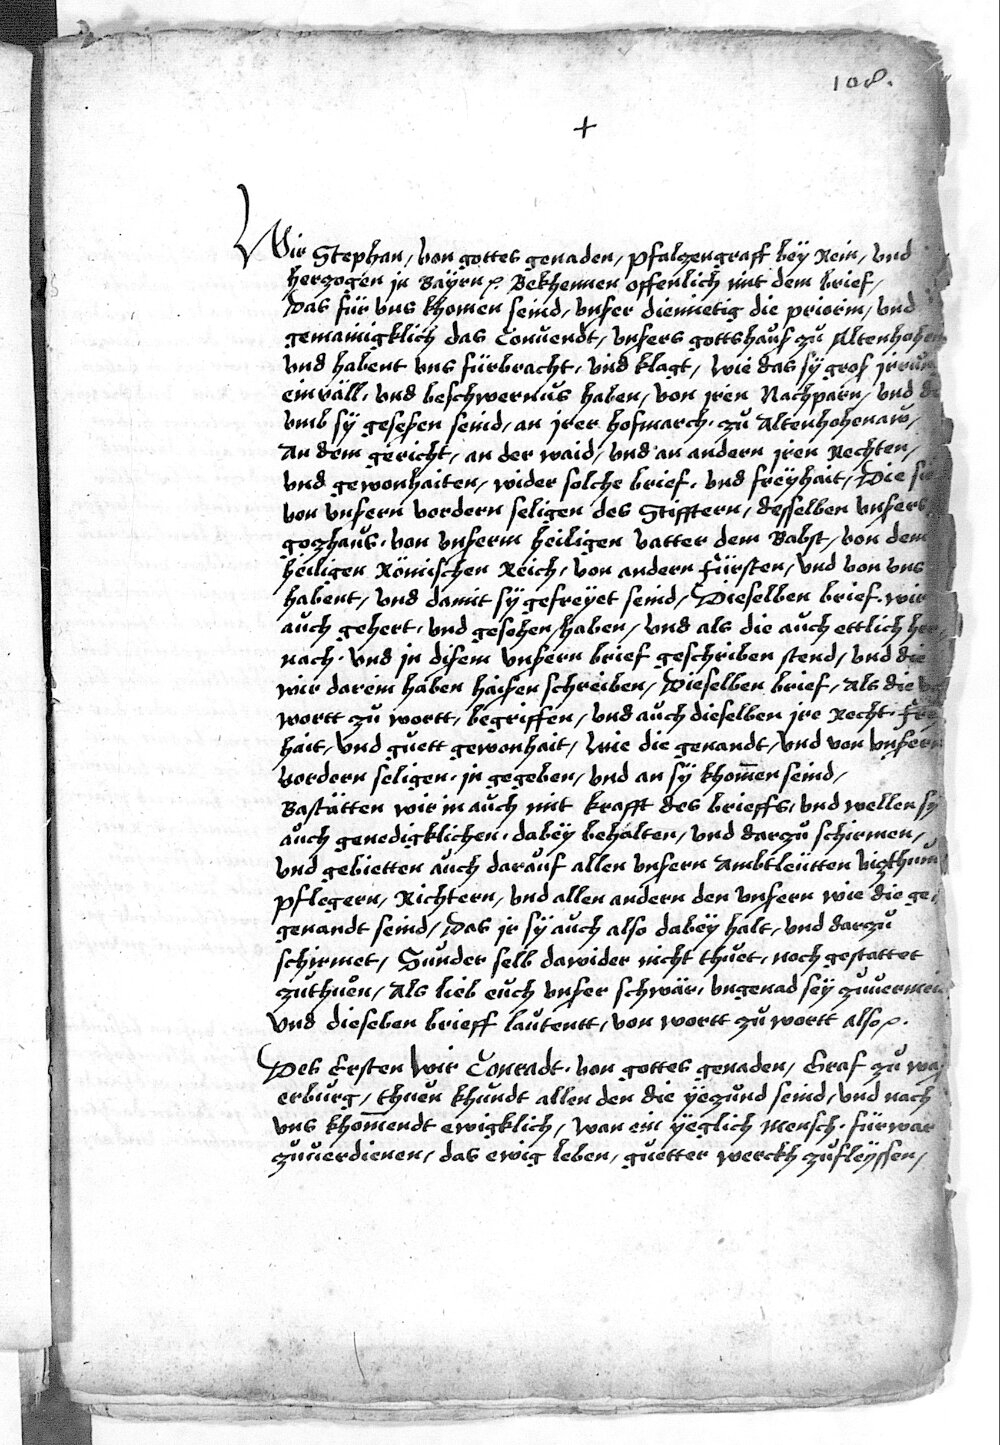 108.
+
Wir Stephan, von gottes genaden, Pfalzengraff bëÿ Rein, vnd
herzogen in Baÿrn ⁊c. Bekhennen offenlich mit dem brief,
Das für vns khomen seind, vnser diemietig die priorin, vnd
gemainigklich das Conuendt, vnsers gottshauß zu Altenhohen
vnd habent vns fürbracht, vnd klagt, wie das sÿ groß
einväll, vnd beschwernus haben, von jren Nachparn, vnd
vmb sÿ gesessen seind, an jrer hofmarch, zu Altenhohenaw,
An dem gericht, an der waid, vnd an andern jren Rechten,
vnd gewonhaiten, wider solche brief, vnd freÿhait, Die sie
von vnsern vordern seligen des Stifftern, desselben vnsers
gozhaus, von vnserm heiligen vatter dem Babst, von dem
heiligen Römischen Reich, von andern Fürsten, vnd von vns
habent, vnd damit sÿ gefreÿet seind, Dieselben brief, wir
auch gehert, vnd gesehen, haben, vnd als die auch ettlich her,
nach, vnd in disem vnsern brief geschriben stend, vnd die
wir darein haben haissen schreiben, Dieselben brief, Als die
wortt zu wortt, begriffen, vnd auch dieselben jre Recht, Frey
hait, vnd guett gewonhait, wie die genandt, vnd von vnsern
vordern seligen, in gegeben, vnd an sÿ khom̄en seind,
Bastätten wir in auch mit krafft des brieffs, vnd wellen sÿ
auch genedigklichen, dabëÿ behalten, vnd darzu schirmen,
vnd gebietten auch darauf allen vnsern Ambtleütten vizthum
Pflegern, Richtern, vnd allen andern den vnsern wie die ge,
genandt seind, Das jr sÿ auch also dabëÿ halt, vnd darzu
schirmet, Sunder selb dawider nicht thuet, noch gestattet
zuthuen, Als lieb euch vnser schwär, vngenad seÿ zuuermeid
Vnd dieselben brieff lautentt, von wortt zu wortt also ⁊c.
Des Ersten Wir Conradt, von gottes genaden, Graf zu was
erburg, thuen khundt allen den die ÿezund seind, vnd nach
vns khom̄endt ewigklich, wan ein ÿeglich Mensch, fürwar
zuuerdienen, das ewig leben, guetter werckh zufleÿssen,